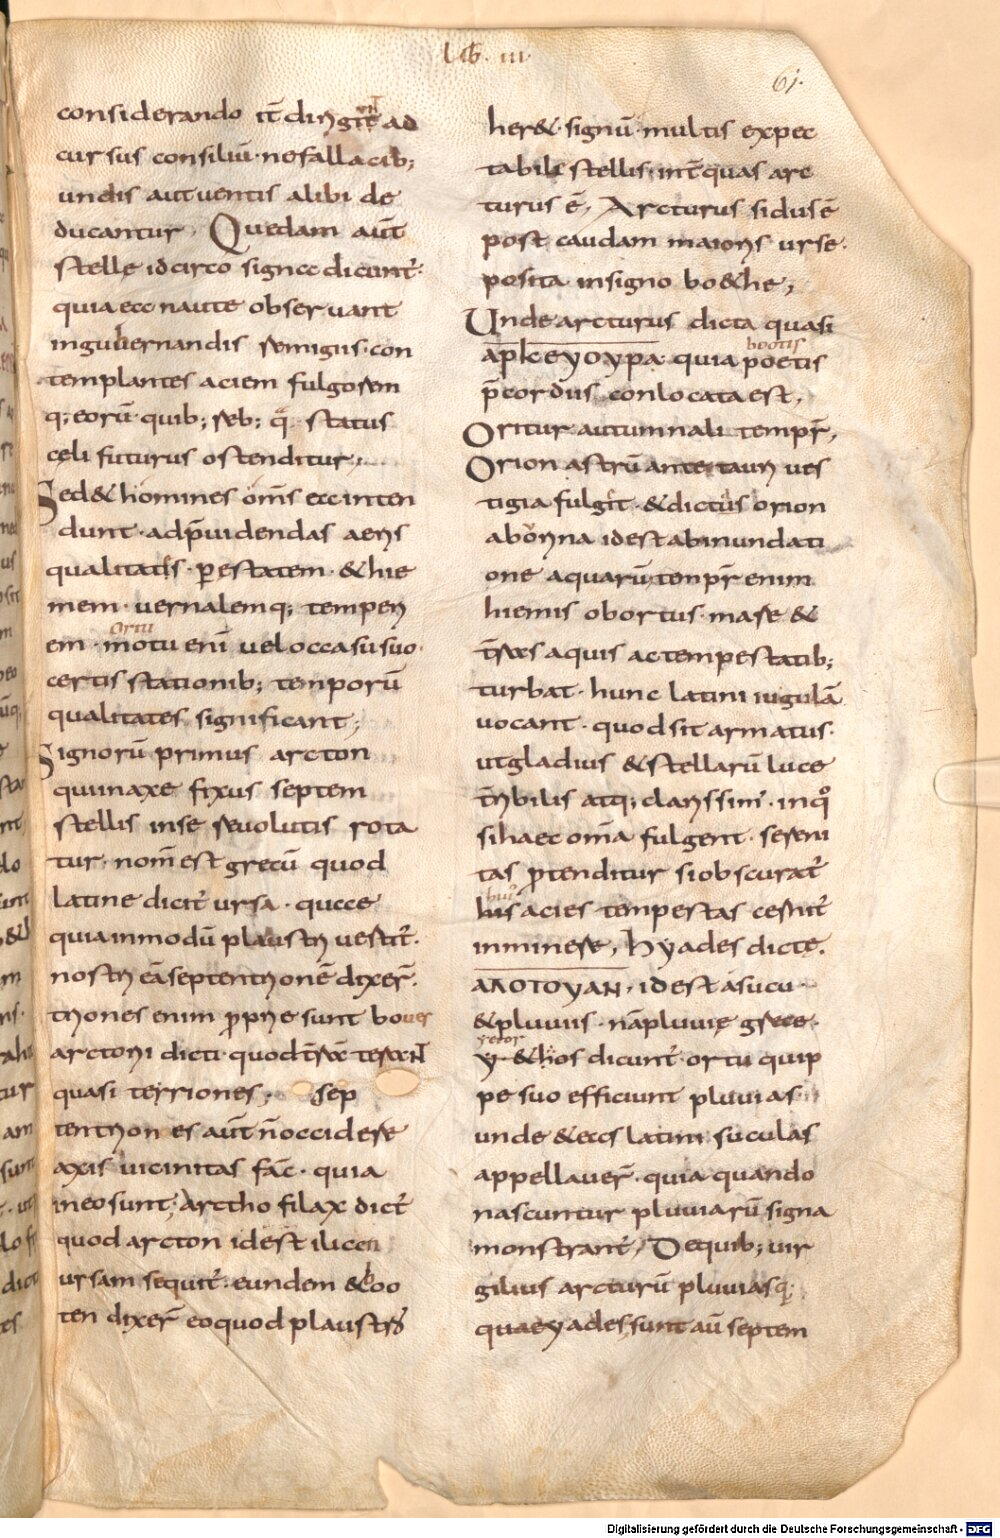 lib. iii.
61.
considerando it̄ dirigit̄ ad
cursus consiliū· ne fallacib;
undis aut uentis alibi de
ducantur. Quedam aūt
stelle idcirco signa dicunt̄·
quia ea naute obseruant
in gubernandis remigiis· con
templantes aciem fulgorem
q; eorū· quib; reb; q̄ status
celi futurus ostenditur;
Sed & homines om̄s ea inten
dunt· ad p̄uidendas aeris
qualitates· ꝑ estatem· & hie
mem· uernalemq; temperi
ortu
em· motu enī uel occasu suo·
certis stationib; temporū
qualitates significant;
Signorū primus arcton
qui in axe fixus septem
stellis in se reuolutis rota
tur· nom̄ est grecū quod
latine dicit̄ ursa· quae
quia in modū plaustri uertit̄·
nostri eā septentrionē dixer̄·
triones enim ꝓprie sunt boues
arctori dicti· quod t̄rā terant
quasi terriones; sep
tentrion es aūt n̄ occidere
axis uicinitas fac̄· quia
in eo sunt; Arctho filax dict̄
quod arcton id est ilicen
ursam sequit̄· eundem & boo
ten dixer̄ eo quod plaustro
her&· signū· multis expec
tabile stellis· int̄ quas arc
turus ē, Arcturus sidus ē
post caudam maioris urse·
posita in signo bo&he;
Unde arcturus dicta quasi
bootis
ΑΡΚΕΥΟΥΡΑ· quia poetis
p̄cordiis conlocata est,
Oritur autumnali tempr̄,
Orion astrū ante tauri ues
tigia fulgit· & dictus orion
ab orina id est ab inundati
one aquarū; tempr̄ enim
hiemis obortus· mare &
t̄ras aquis ac tempestatib;
turbat· hunc latini iugulā
uocant· quod sit armatus·
ut gladius & stellarū luce
t̄ribilis atq; clarissim̄· in qͦ
si haec om̄a fulgent· sereni
tas ꝓtenditur si obscurat̄
huiꝰ
his acies tempestas cernit̄
inminere, Hyades dicte·
ΑΠΟΤΟΥΑΝ· id est a sucu·
& pluuiis· nā pluuie grece·
yetor
y· & hos dicunt̄· ortu quip
pe suo efficiunt pluuias·
unde & eas latini suculas
appellauer̄· quia quando
nascuntur pluuiarū signa
monstrant̄, De quib; uir
gilius arcturū pluuiasq;
quae yades sunt aū septem
Digitalisierung gefördert durch die Deutsche Forschungsgemeinschaft - DFG